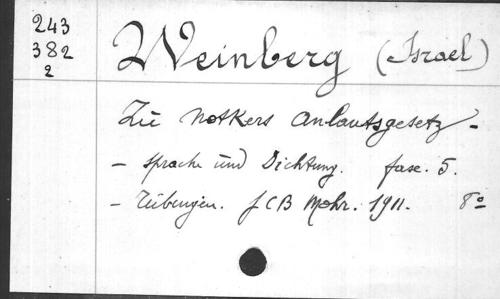 243
382
2
Weinberg (Israel)
Zu Notkers Anlautsgesetz -
- Sprache und Dichtung. fasc. 5.
- Tübingen. J C B Mohr. 1911. 8º